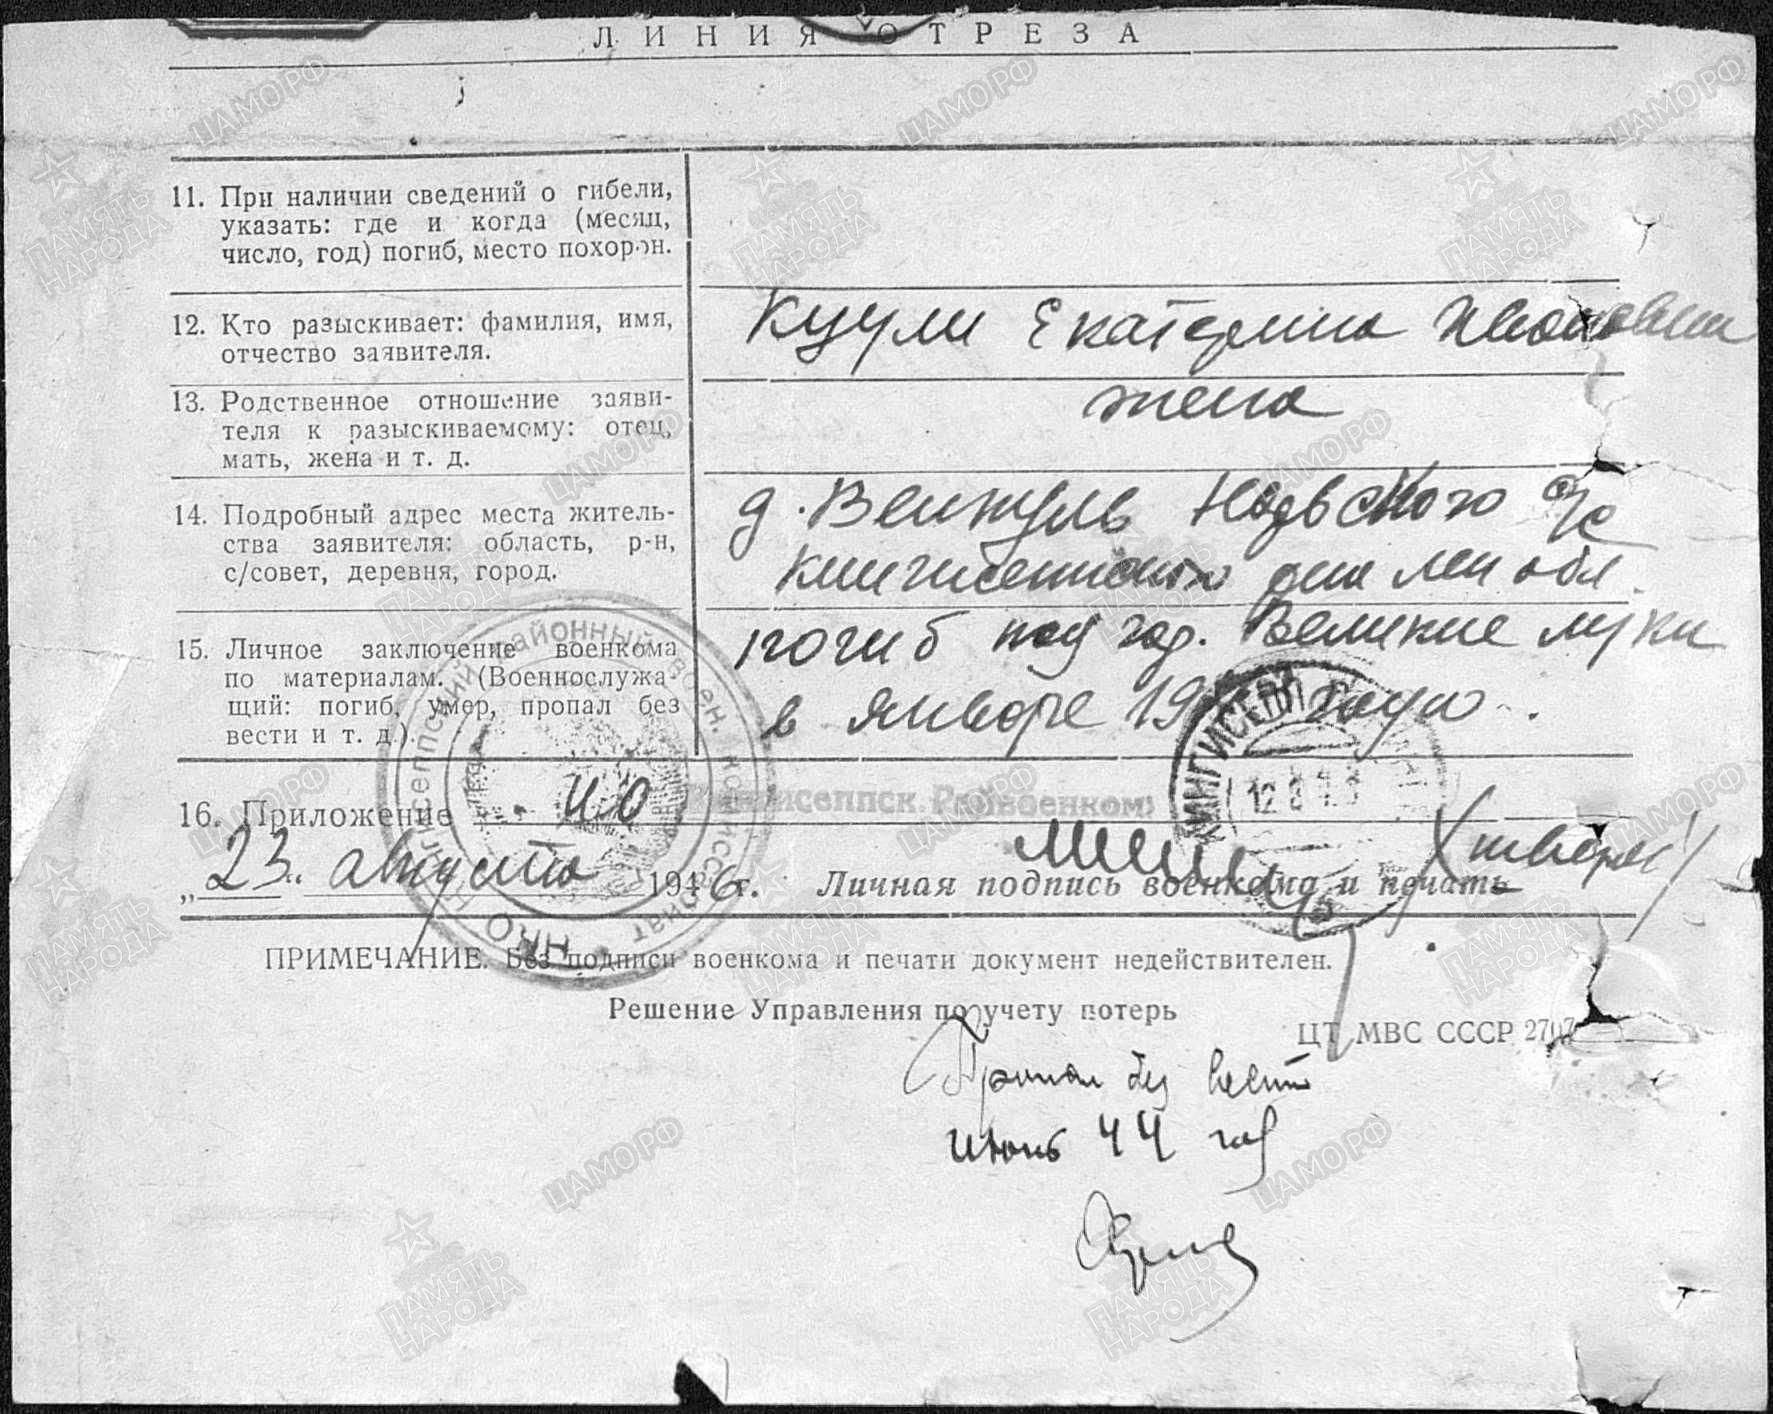 ЛИНИЯ ОТРЕЗА
11. При наличии сведений о гибели,
указать: где и когда (месяц,
число, год) погиб, место похорон.
12. Кто разыскивает: фамилия, имя,
отчество заявителя.
Куули Екатерина Ивановна
13. Родственное отношение заяви-
теля к разыскиваемому: отец,
мать, жена и т. д.
жена
14. Подробный адрес места житель-
ства заявителя: область, р-н,
с/совет, деревня, город.
д. Вейкуль с/с
Кингисеппского Лен обл.
15. Личное заключение военкома
по материалам. (Военнослужа-
щий: погиб, умер, пропал без
вести и т. д.).
погиб под гор. Великие Луки
в январе 19 году.
16. Приложение
Кингисеппск. Райвоенком
КИНГИСЕПП
„23" августа 1946 г. Личная подпись военкома и печать
ПРИМЕЧАНИЕ. Без подписи военкома и печати документ недействителен.
Решение Управления по учету потерь
ЦТ МВС СССР 2707
Пропал без вести
июнь 44 год